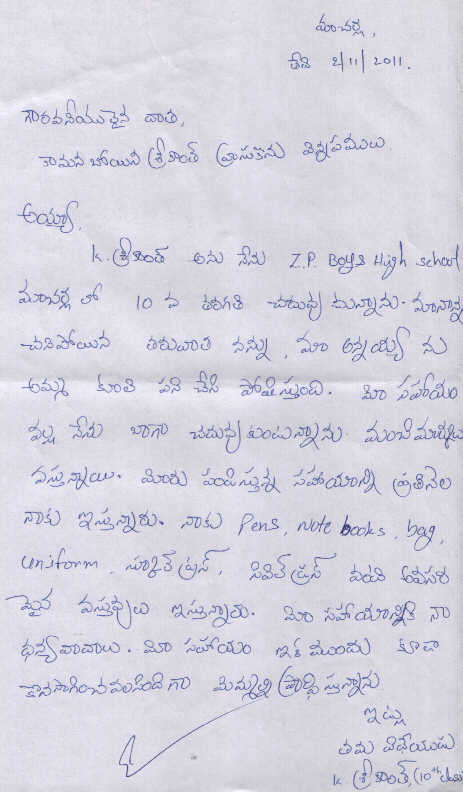 మాచర్ల,
తేది 2/11/2011.
గౌరవనీయులైన దాత,
కామన బోయిన శ్రీకాంత్ వ్రాసుకొను విన్నపములు.
అయ్యా,
K. శ్రీకాంత్ అను నేను Z.P. Boys High school
మాచర్ల లో 10 వ తరగతి చదువు చున్నాను. మానాన్న
చనిపోయిన తరువాత నన్ను, మా అన్నయ్య ను
అమ్మ కూలి పని చేసి పోషిస్తుంది. మీ సహాయం
వల్ల నేను బాగా చదువు కుంటున్నాను. మంచి మార్కులు
వస్తున్నాయి. మీరు పంపిస్తున్న సహాయాన్ని ప్రతినెల
నాకు ఇస్తున్నారు. నాకు Pens, note books, bag,
uniform, స్కూల్ డ్రస్, సివిల్ డ్రస్ వంటి అవసర
మైన వస్తువులు ఇస్తున్నారు. మీ సహాయానికి నా
ధన్యవాదాలు. మీ సహాయం ఇక ముందు కూడా
కొనసాగించవలసిందిగా మిమ్మల్ని ప్రార్థిస్తున్నాను.
ఇట్లు
తమ విధేయుడు
K. శ్రీకాంత్, (10th class)